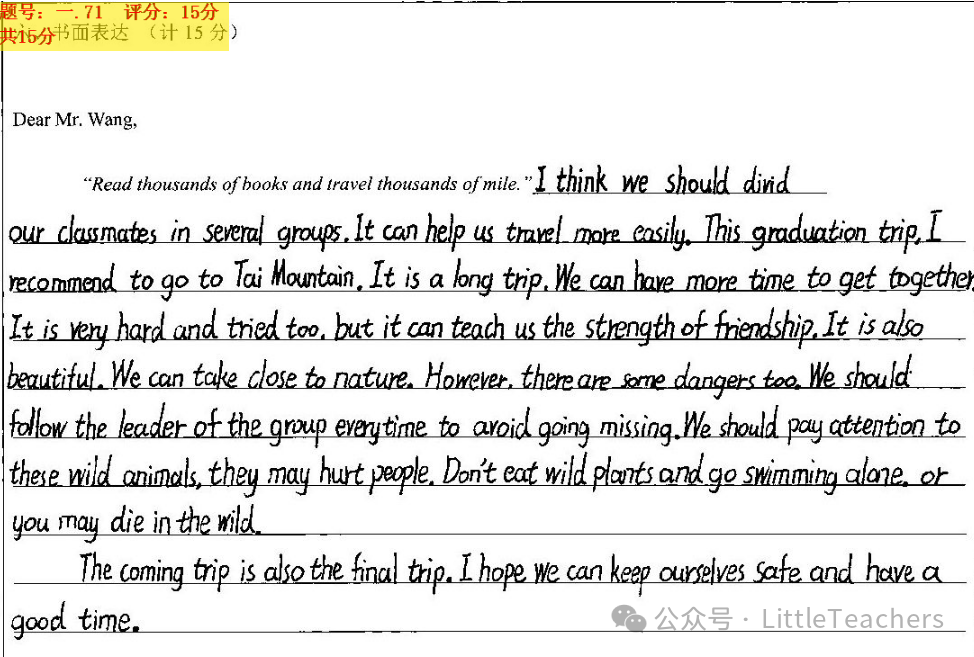 题号：一.71 评分：15分
共15分 书面表达 （计 15 分）
Dear Mr. Wang,
“Read thousands of books and travel thousands of mile.” I think we should divid
our classmates in several groups. It can help us travel more easily. This graduation trip, I
recommend to go to Tai Mountain. It is a long trip. We can have more time to get together.
It is very hard and tried too. but it can teach us the strength of friendship. It is also
beautiful. We can take close to nature. However. there are some dangers too. We should
follow the leader of the group everytime to avoid going missing. We should pay attention to
these wild animals, they may hurt people. Don't eat wild plants and go swimming alone. or
you may die in the wild.
The coming trip is also the final trip. I hope we can keep ourselves safe and have a
good time.
公众号 · LittleTeachers